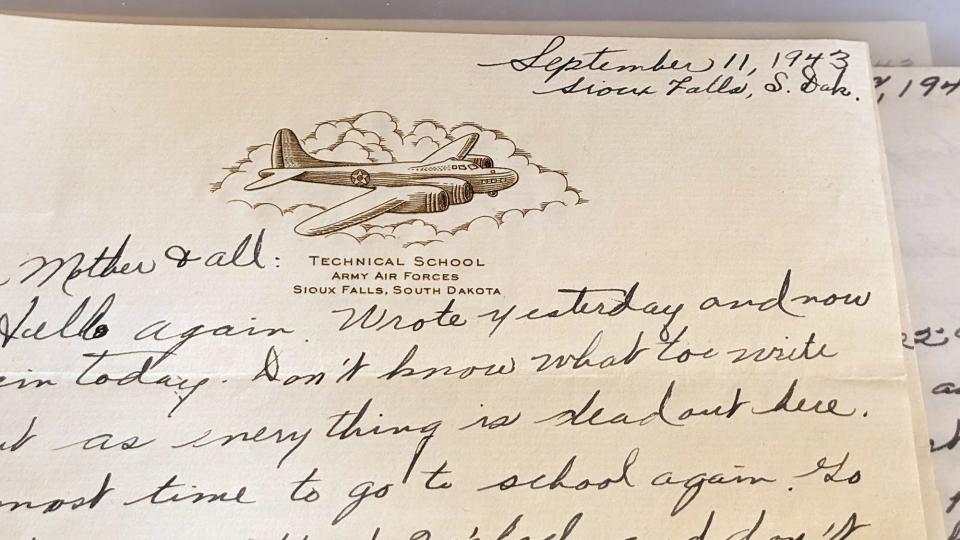 September 11, 1943
Sioux Falls, S. Dak.
Mother & all:
TECHNICAL SCHOOL
ARMY AIR FORCES
SIOUX FALLS, SOUTH DAKOTA
Hello again. Wrote yesterday and now
today. Don't know what too write
as everything is dead out here.
most time to go to school again. So
and don't
, 194